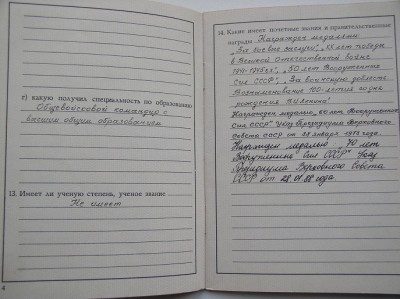 г) какую получил специальность по образованию
Общевойсковой командир с
высшим общим образованием
13. Имеет ли ученую степень, ученое звание
Не имеет
4
14. Какие имеет почетные звания и правительственные
награды Награжден медалями:
„За боевые заслуги", „XX лет победы
в Великой Отечественной войне
1941-1945гг", „50 лет Вооруженных
Сил СССР", „За воинскую доблесть.
В ознаменование 100-летия со дня
рождения В.И. Ленина"
Награжден медалью „60 лет Вооруженных
Сил СССР" Указ Президиума Верховного
Совета СССР от 28 января 1978 года.
Награжден медалью „70 лет
Вооруженных Сил СССР" Указ
Президиума Верховного Совета
СССР от 28.01.88 года.